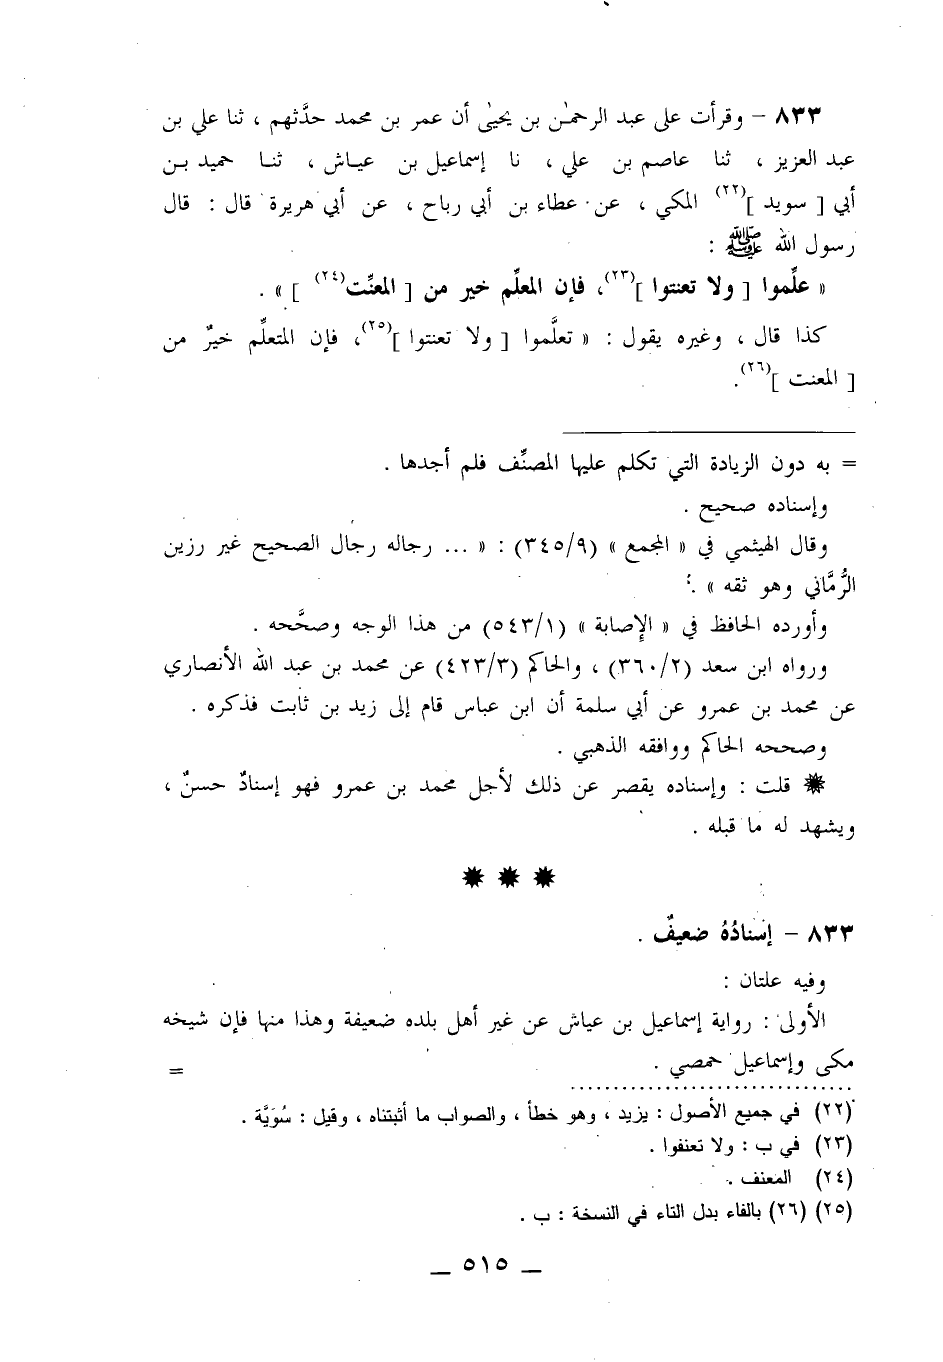 ٨٣٣ – وقرأت على عبد الرحمٰن بن يحيىٰ أن عمر بن محمد حدَّثهم ، ثنا علي بن
عبد العزيز ، ثنا عاصم بن علي ، نا إسماعيل بن عياش ، ثنا حميد بن
أبي [ سويد ](٢٢) المكي ، عن عطاء بن أبي رباح ، عن أبي هريرة قال : قال
رسول الله ﷺ :
« علِّموا [ ولا تعنتوا ](٢٣)، فإن المعلِّم خير من [ المعنِّت(٢٤) ] » .
كذا قال ، وغيره يقول : « تعلَّموا [ ولا تعنتوا ](٢٥)، فإن المتعلِّم خيرٌ من
[ المعنت ](٢٦).
= به دون الزيادة التي تكلم عليها المصنِّف فلم أجدها .
وإسناده صحيح .
وقال الهيثمي في « المجمع » (٣٤٥/٩) : « ... رجاله رجال الصحيح غير رزين
الرُّمَّاني وهو ثقه » .
وأورده الحافظ في « الإصابة » (٥٤٣/١) من هذا الوجه وصحَّحه .
ورواه ابن سعد (٣٦٠/٢) ، والحاكم (٤٢٣/٣) عن محمد بن عبد الله الأنصاري
عن محمد بن عمرو عن أبي سلمة أن ابن عباس قام إلى زيد بن ثابت فذكره .
وصححه الحاكم ووافقه الذهبي .
✸ قلت : وإسناده يقصر عن ذلك لأجل محمد بن عمرو فهو إسنادٌ حسنٌ ،
ويشهد له ما قبله .
✸ ✸ ✸
٨٣٣ – إسْنادُهُ ضعيفٌ .
وفيه علتان :
الأولى : رواية إسماعيل بن عياش عن غير أهل بلده ضعيفة وهذا منها فإن شيخه
مكى وإسماعيل حمصي . =
(٢٢) في جميع الأصول : يزيد ، وهو خطأ ، والصواب ما أثبتناه ، وقيل : سُوَيَّة .
(٢٣) في ب : ولا تعنفوا .
(٢٤) المعنف .
(٢٥) (٢٦) بالفاء بدل التاء في النسخة : ب .
— ٥١٥ —